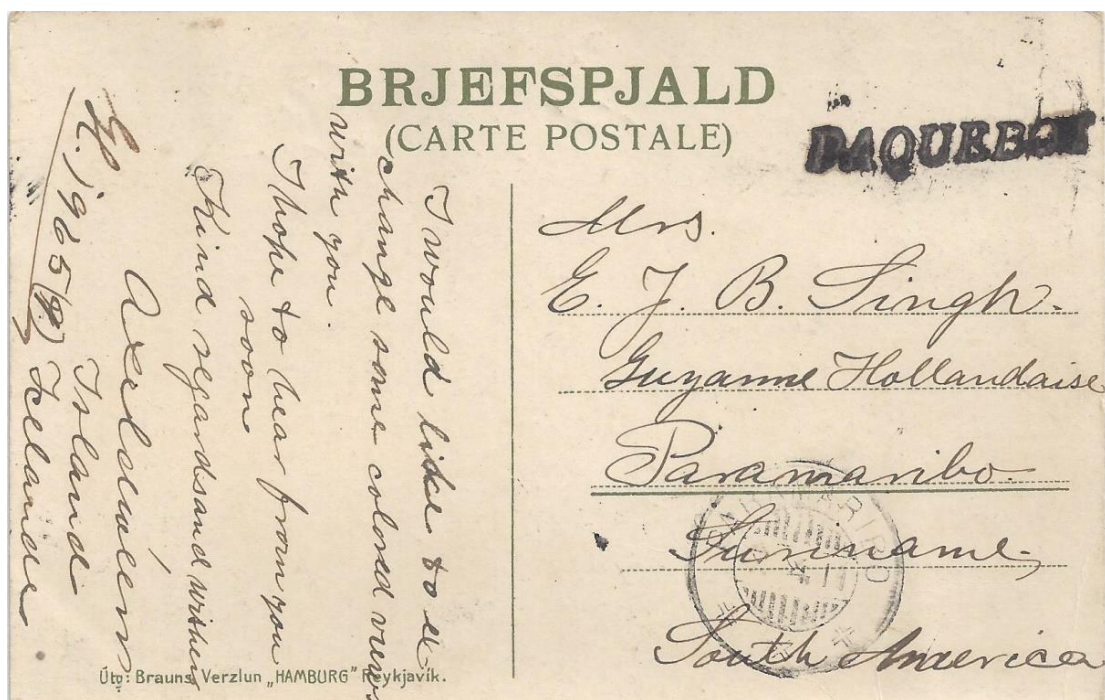 BRJEFSPJALD
(CARTE POSTALE)
PAQUEBOT
I would like to ex
change some colored views
with you.
I hope to hear from you
soon
Kind regardsand
Island
Icelande
Mrs.
E. J. B. Singh.
Guyanne Hollandaise
Paramaribo.
Suriname,
South America
PARAMARIBO
Útg: Brauns Verzlun „HAMBURG" Reykjavík.